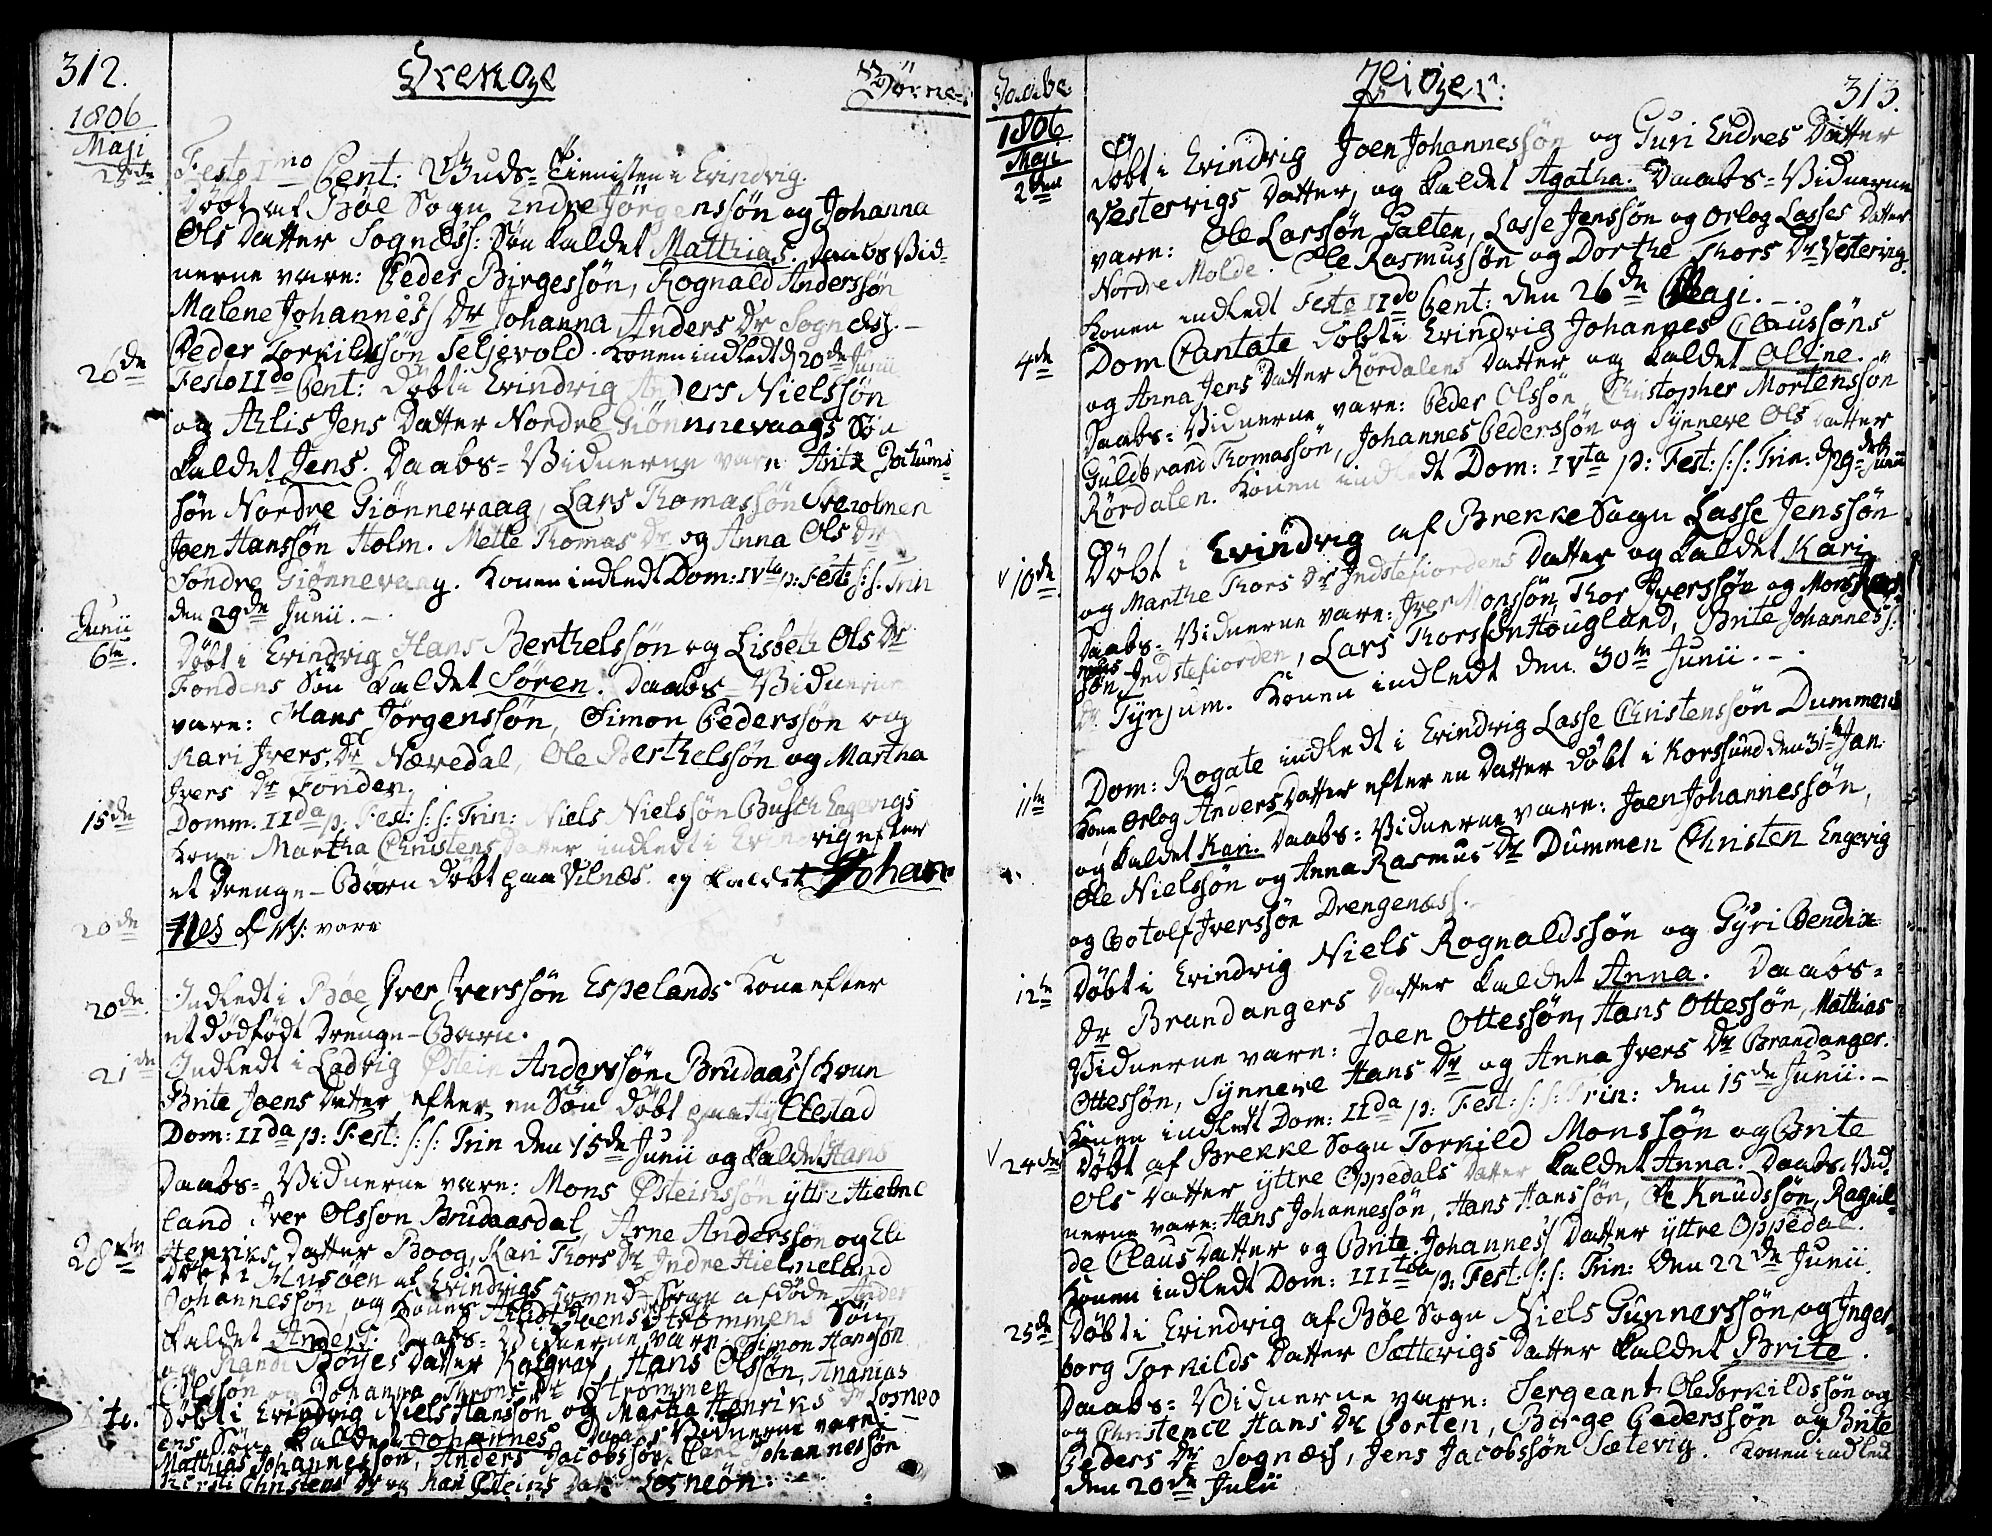 312.
Drenge
Børne-
1806
Maji
25de
Festo Imo Pent: Buds= Tienisten i Evindvig.
Døbt af Bøe Sogn Endre Jörgenssön og Johanna
Ols Datter Sogness: Sön kaldet Matthias. Daabs Vid=
nerne vare: Peder Birgessön, Rognald Anderssön
Malene Johannes's Dr Johanna Anders Dr Sogness. –
Peder Torkildssön Seljevold. Konen indledt d 20de Junii
26de
Festo IIdo Pent: døbt i Evindvig Anders Nielssön
og Ahlis Jens Datter Nordre Giönnevaags Sön
kaldet Jens. Daabs= Vidnerne vare
sön Nordre Giönnevaag, Lars Thomassön
Joen Hanssön Holm. Mette Thomas Dr og Anna Ols Dr
Söndre Giönnevaag. Konen indledt Dom: IVta p: Fest: s: s: Trin
den 29de Junii. –
Junii
6te.
Døbt i Evindvig Hans Berthelssön og Lisbeth Ols Dr
Fondens Sön kaldet Sören. Daabs= Vidnerne
vare: Hans Jörgenssön, Simon Pederssön og
Kari Ivers Dr Nævedal, Ole Berthelssön og Martha
Ivers Dr Fonden.
15de
Domm. IIda p: Fest: s: s: Trin: Niels Nielssön Busch Engevigs
Kone Martha Christens Datter indledt i Evindvig efter
et Drenge- Barn døbt paa Vilnæs og kaldet Johan-
20de
nes F W: vare
20de.
Indledt i Bøe Iver Iverssön Espelands Kone efter
et dødfødt Drenge- Barn.
21de
Indledt i Ladvig Østein Anderssön Brudaas's Kone
Brite Joens Datter efter en Sön døbt paa Kyllestad
Dom: IIda p: Fest: s: s: Trin den 15de Junii og kaldet Hans
Daabs= Vidnerne vare: Mons Østeinssön yttre Hielme
land Iver Olsson Brudaasdal, Arne Anderssön og Eli
Henriks Datter Boog, Kari Thors Dr Indre Hielmeland
28de
Døbt i Husöen af Evindvigs Hovned Sogn afdöde Ander
Johannessön og Kones Joens Dr Strömmens Sön
kaldet Anders. Daabs= Vidnerne vare Simon Hanssön
og Randi Böyes Datter Kalgraf, Hans Olssön, Ananias
Olssön og Johanna Throns Dr Strömmen
Döbt i Evindvig Niels Hanssön og Martha Henriks Dr Losneo
ens Sön kaldet Johannes Daabs Vidnerne vare
Matthias Johannessön, Anders Jacobssön, Carl Johannessön
Kirsti Christens Dr og Kari Østeins Datter Losneön.
Daabe.
Piger:
313.
1806
Maji
2den
Døbt i Evindvig Joen Johannessön og Guri Endres Datter
Vestervigs Datter, og kaldet Agatha. Daabs= Vidnerne
vare: Ole Larssön Galten, Lasse Jenssön og Orlog Lasses Datter
Nordre Molde. Ole Rasmussön og Dorthe Thors Dr Vestervig.
Konen indledt Festo IIdo Pent: den 26de Maji. –.
4de
Dom Cantate döbt i Evindvig Johannes Claussöns
og Anna Jens Datter Rördalens Datter og kaldet Oline.
Daabs= Vidnerne vare: Peder Olssön, Christopher Mortenssön
Guldbrand Thomassön, Johannes Pederssön og Synneve Ols Datter
Rördalen. Konen indledt Dom: IVta p: Fest: s: s: Trin: d 29de Junii
√ 10de.
Døbt i Evindvig af Brekke Sogn Lasse Jenssön
og Marthe Thors Dr Indstefiordens Datter og kaldet Kari
Daabs= Vidnerne vare: Iver Monssön, Thor Iverssön og Mons
sön Indstefiorden, Lars Thorssön Hougland, Brite Johannes's
Dr Tynjum. Konen indledt den 30te Junii. –.
11te
Dom: Rogate indledt i Evindvig Lasse Christenssön Dummens
Kone Orlog Anders Datter efter en Datter döbt i Korssund den 31te Jan
og kaldet Kari. Daabs= Vidnerne vare: Joen Johannessön,
Ole Nielssön og Anna Rasmus Dr Dummen Christen Engevig
og Botolf Iverssön Drengenæss.
12te
Døbt i Evindvig Niels Rognaldssön og Gyri Bendix
Dr Brandangers Datter kaldet Anna. Daabs=
Vidnerne vare: Joen Ottessön, Hans Ottessön, Mathias
Ottessön, Synneve Hans Dr og Anna Ivers Dr Brandanger.
Konen indledt Dom: IIda p: Fest: s: s: Trin: den 15de Junii. –
√ 24de
Døbt af Brekke Sogn Torkild Monssön og Brite
Ols Datter yttre Oppedals Datter kaldet Anna. Daabs: Vid=
nerne vare: Hans Johannessön, Hans Hanssön, Ole Knudssön, Ragnil-
de Claus Datter og Brite Johannes's Datter yttre Oppedal.
Konen indledt Dom: IIItia p: Fest: s: s: Trin: den 22de Junii
25de
Døbt i Evindvig af Bøe Sogn Niels Gunnerssön og Inger-
borg Torkilds Datter Sættevigs Datter kaldet Brite.
Daabs= Vidnerne vare: Sergeant Ole Torkildssön og
og Christence Hans Dr Porten, Börge Pederssön og Brite
Peders Dr Sognæss, Jens Jacobssön Sætevig. Konen indledt
den 20de Julii